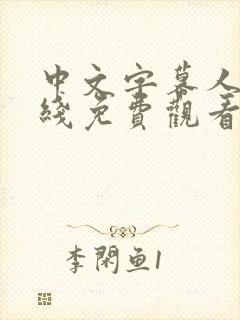 中文字幕人
綫免費觀看
李閑鱼1